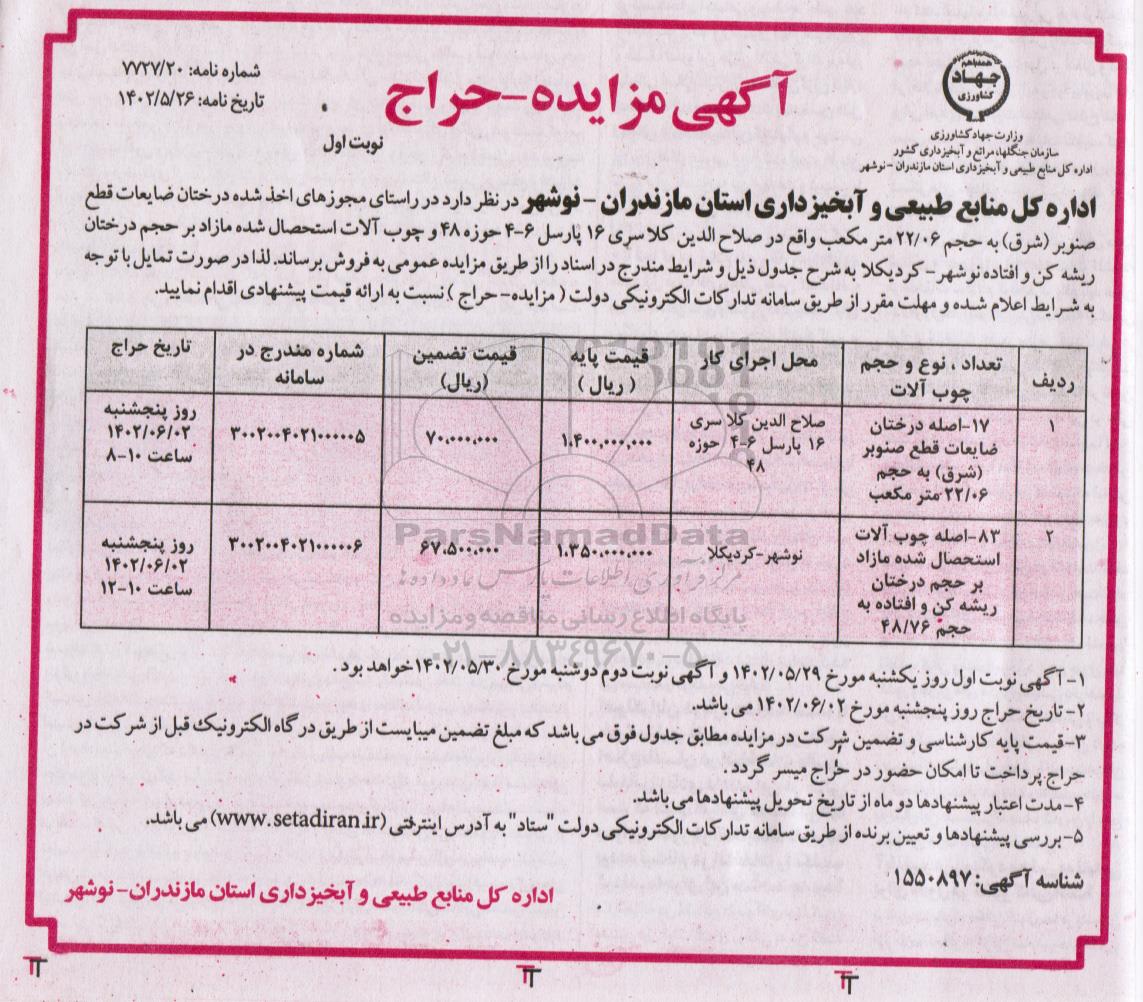 همداهی
جهاد
کشاورزی
وزارت جهاد کشاورزی
سازمان جنگلها، مراتع و آبخیزداری کشور
اداره کل منابع طبیعی و آبخیزداری استان مازندران - نوشهر
آگهی مزایده-حراج
شماره نامه: ۷۷۲۷/۲۰
تاریخ نامه: ۱۴۰۲/۵/۲۶
نوبت اول
اداره کل منابع طبیعی و آبخیزداری استان مازندران - نوشهر در نظر دارد در راستای مجوزهای اخذ شده درختان ضایعات قطع
صنوبر (شرق) به حجم ۲۲/۰۶ متر مکعب واقع در صلاح الدین کلا سری ۱۶ پارسل ۶-۴ حوزه ۴۸ و چوب آلات استحصال شده مازاد بر حجم درختان
ریشه کن و افتاده نوشهر- کردیکلا به شرح جدول ذیل و شرایط مندرج در اسناد را از طریق مزایده عمومی به فروش برساند. لذا در صورت تمایل با توجه
به شرایط اعلام شده و مهلت مقرر از طریق سامانه تدارکات الکترونیکی دولت ( مزایده- حراج ) نسبت به ارائه قیمت پیشنهادی اقدام نمایید.
ردیف | تعداد ، نوع و حجم چوب آلات | محل اجرای کار | قیمت پایه ( ریال ) | قیمت تضمین (ریال) | شماره مندرج در سامانه | تاریخ حراج
۱ | ۱۷-اصله درختان ضایعات قطع صنوبر (شرق) به حجم ۲۲/۰۶ متر مکعب | صلاح الدین کلا سری ۱۶ پارسل ۶-۴ حوزه ۴۸ | ۱.۴۰۰.۰۰۰.۰۰۰ | ۷۰.۰۰۰.۰۰۰ | ۳۰۰۲۰۰۴۰۲۱۰۰۰۰۰۵ | روز پنجشنبه ۱۴۰۲/۰۶/۰۲ ساعت ۱۰-۸
۲ | ۸۳-اصله چوب آلات استحصال شده مازاد بر حجم درختان ریشه کن و افتاده به حجم ۴۸/۷۶ | نوشهر-کردیکلا | ۱.۳۵۰.۰۰۰.۰۰۰ | ۶۷.۵۰۰.۰۰۰ | ۳۰۰۲۰۰۴۰۲۱۰۰۰۰۰۶ | روز پنجشنبه ۱۴۰۲/۰۶/۰۲ ساعت ۱۰-۱۲
ParsNamadData
مرکز فرآوری اطلاعات پارس نماد داده ها
پایگاه اطلاع رسانی مناقصه و مزایده
۰۲۱-۸۸۳۴۹۶۷۰-۵
۱-آگهی نوبت اول روز یکشنبه مورخ ۱۴۰۲/۰۵/۲۹ و آگهی نوبت دوم دوشنبه مورخ ۱۴۰۲/۰۵/۳۰ خواهد بود .
۲- تاریخ حراج روز پنجشنبه مورخ ۱۴۰۲/۰۶/۰۲ می باشد.
۳-قیمت پایه کارشناسی و تضمین شرکت در مزایده مطابق جدول فوق می باشد که مبلغ تضمین میبایست از طریق درگاه الکترونیک قبل از شرکت در
حراج پرداخت تا امکان حضور در حراج میسر گردد.
۴-مدت اعتبار پیشنهادها دو ماه از تاریخ تحویل پیشنهادها می باشد.
۵- بررسی پیشنهادها و تعیین برنده از طریق سامانه تدارکات الکترونیکی دولت "ستاد" به آدرس اینترنتی (www.setadiran.ir) می باشد.
شناسه آگهی: ۱۵۵۰۸۹۷
اداره کل منابع طبیعی و آبخیزداری استان مازندران- نوشهر